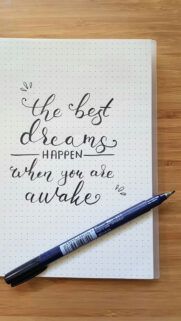 the best
dreams
HAPPEN
when you are
awake